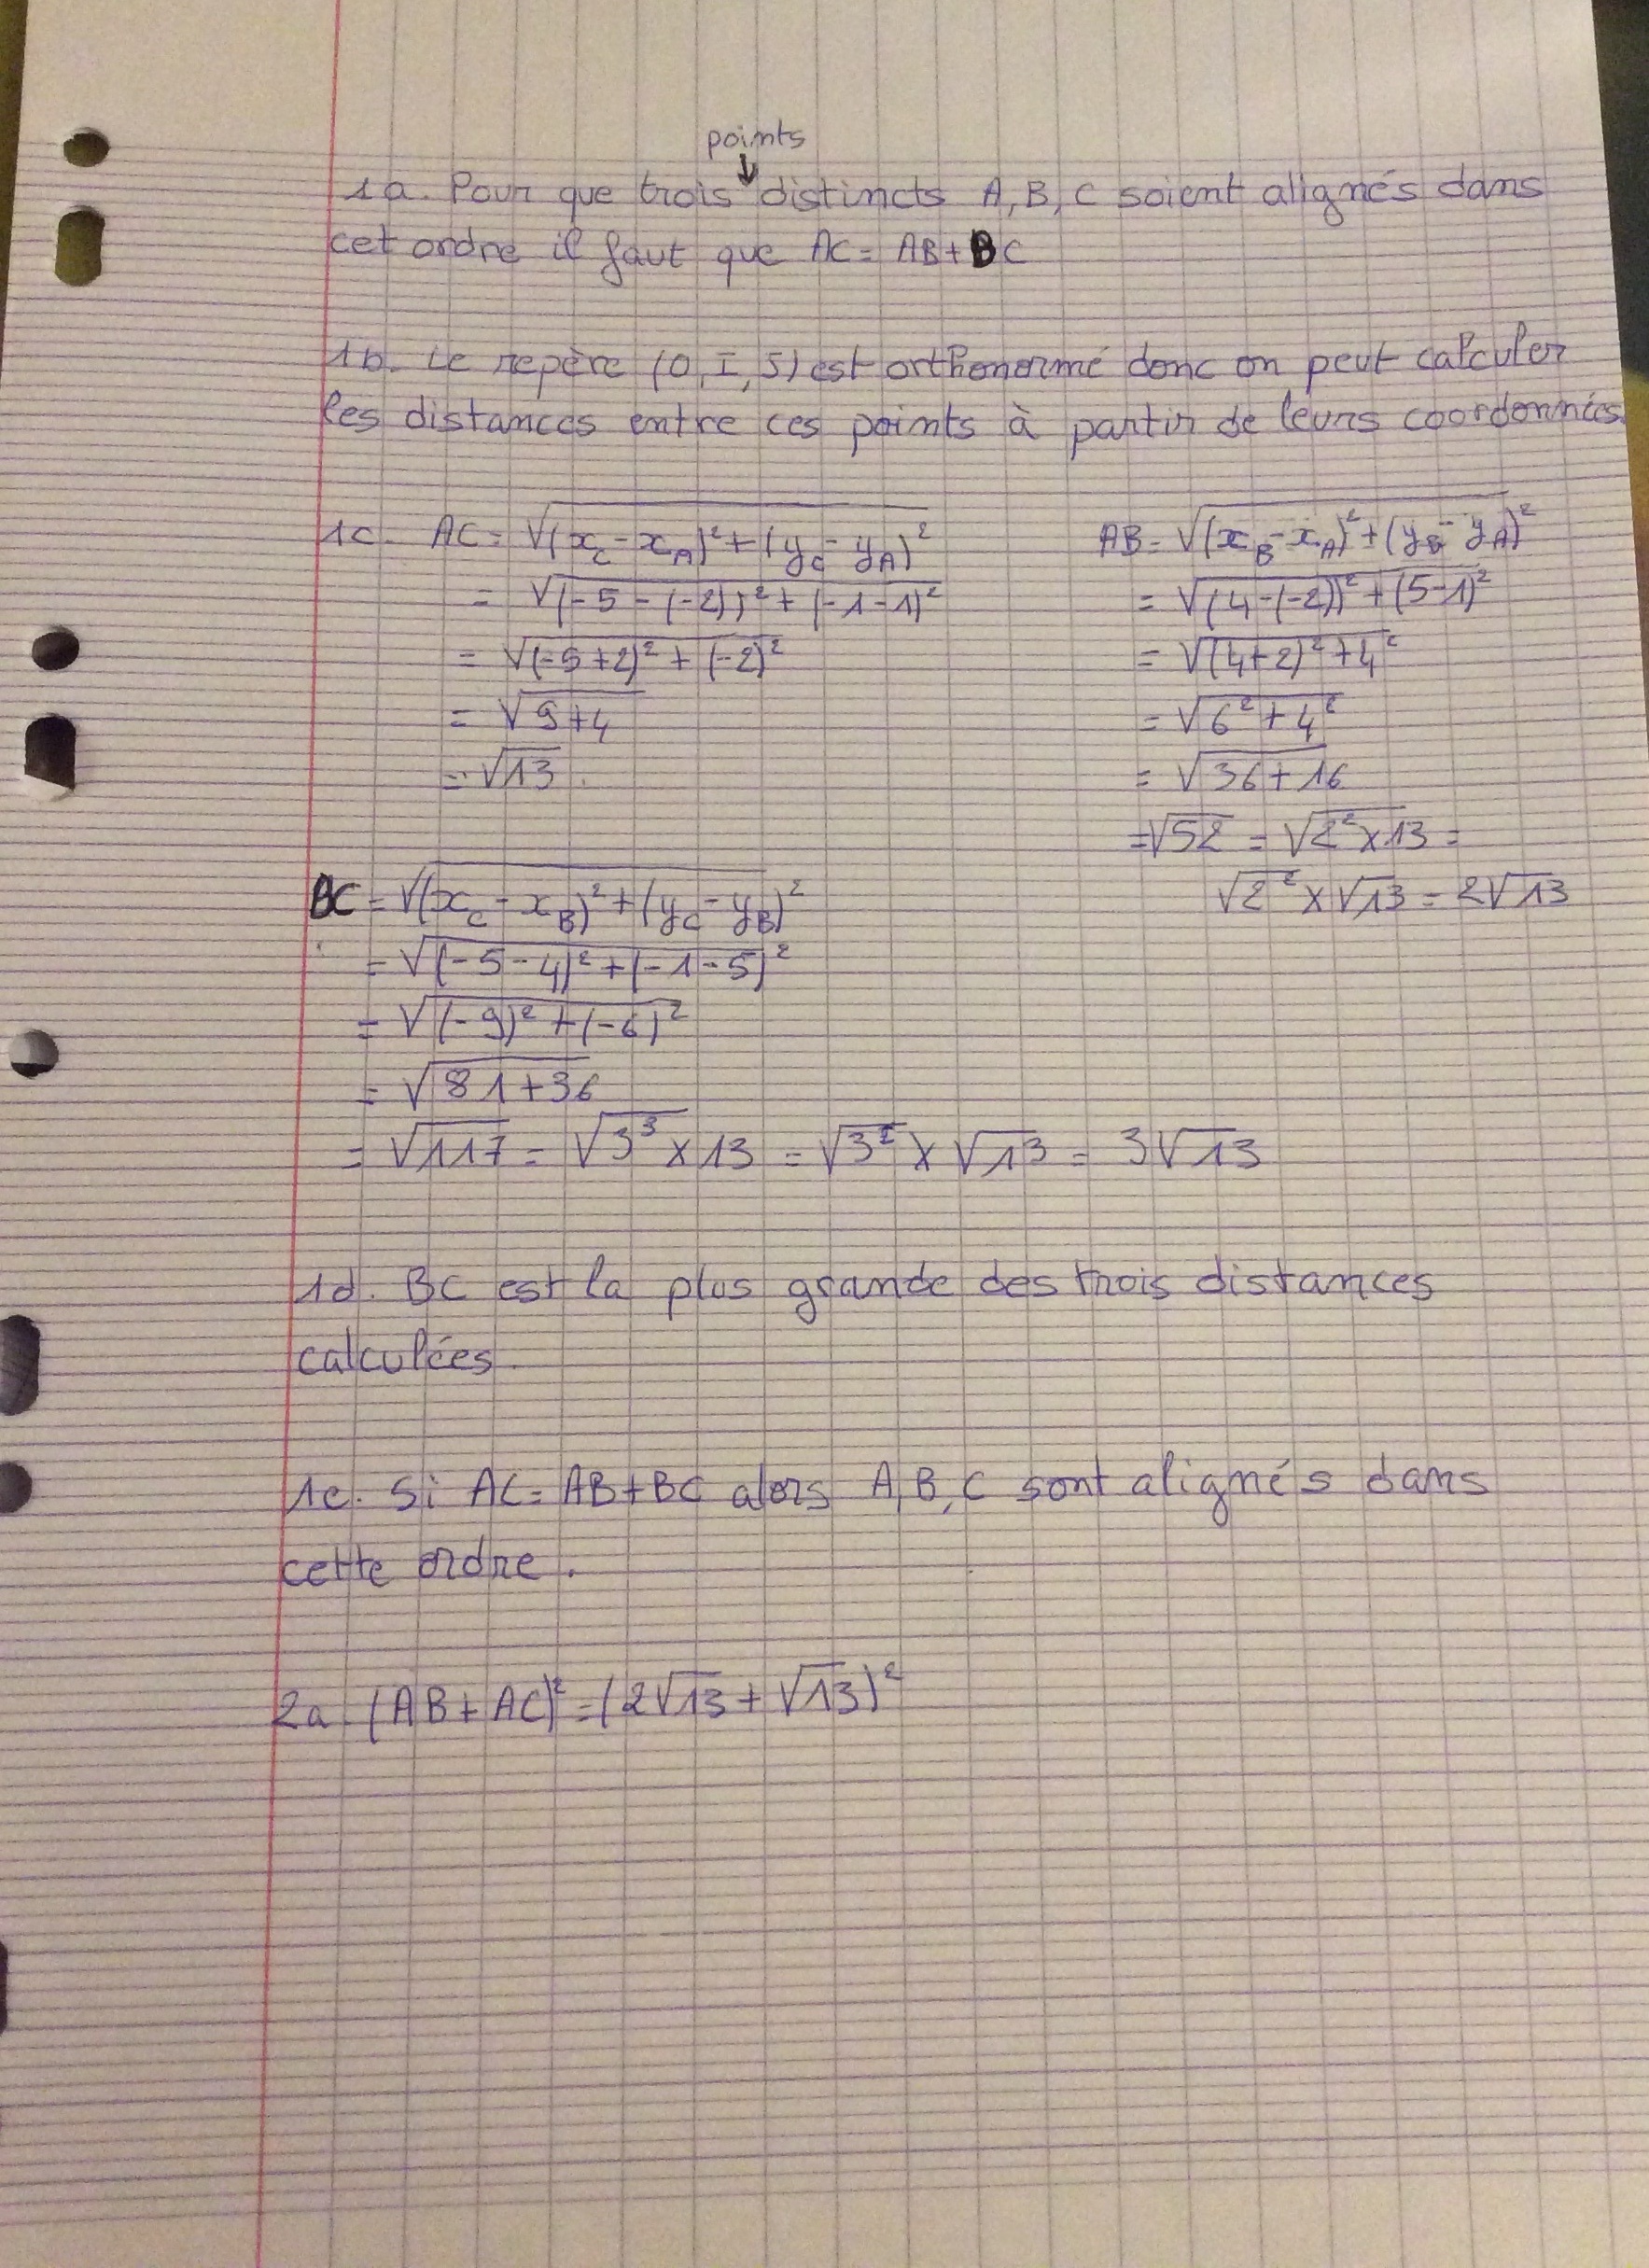 points
↓
1a. Pour que trois distincts A, B, C soient alignés dans
cet ordre il faut que AC = AB + BC
1b. Le repère (O, I, J) est orthonormé donc on peut calculer
les distances entre ces points à partir de leurs coordonnées.
1c. AC = √(x_C - x_A)² + (y_C - y_A)²
= √(-5 - (-2))² + (-1 - 1)²
= √(-5+2)² + (-2)²
= √9+4
= √13.
AB = √(x_B - x_A)² + (y_B - y_A)²
= √(4-(-2))² + (5-1)²
= √(4+2)² + 4²
= √6² + 4²
= √36 + 16
= √52 = √2² × 13 =
√2² × √13 = 2√13
BC = √(x_C - x_B)² + (y_C - y_B)²
= √(-5 - 4)² + (-1 - 5)²
= √(-9)² + (-6)²
= √81 + 36
= √117 = √3³ × 13 = √3² × √13 = 3√13
1d. BC est la plus grande des trois distances
calculées.
1e. Si AC = AB + BC alors A, B, C sont alignés dans
cette ordre.
2a. (AB + AC)² = (2√13 + √13)²